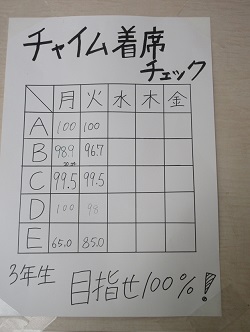 チャイム着席
チェック
月 火 水 木 金
A 100 100
B 98.9 96.7
C 99.5 99.5
D 100 98
E 65.0 85.0
3年生
目指せ100%!